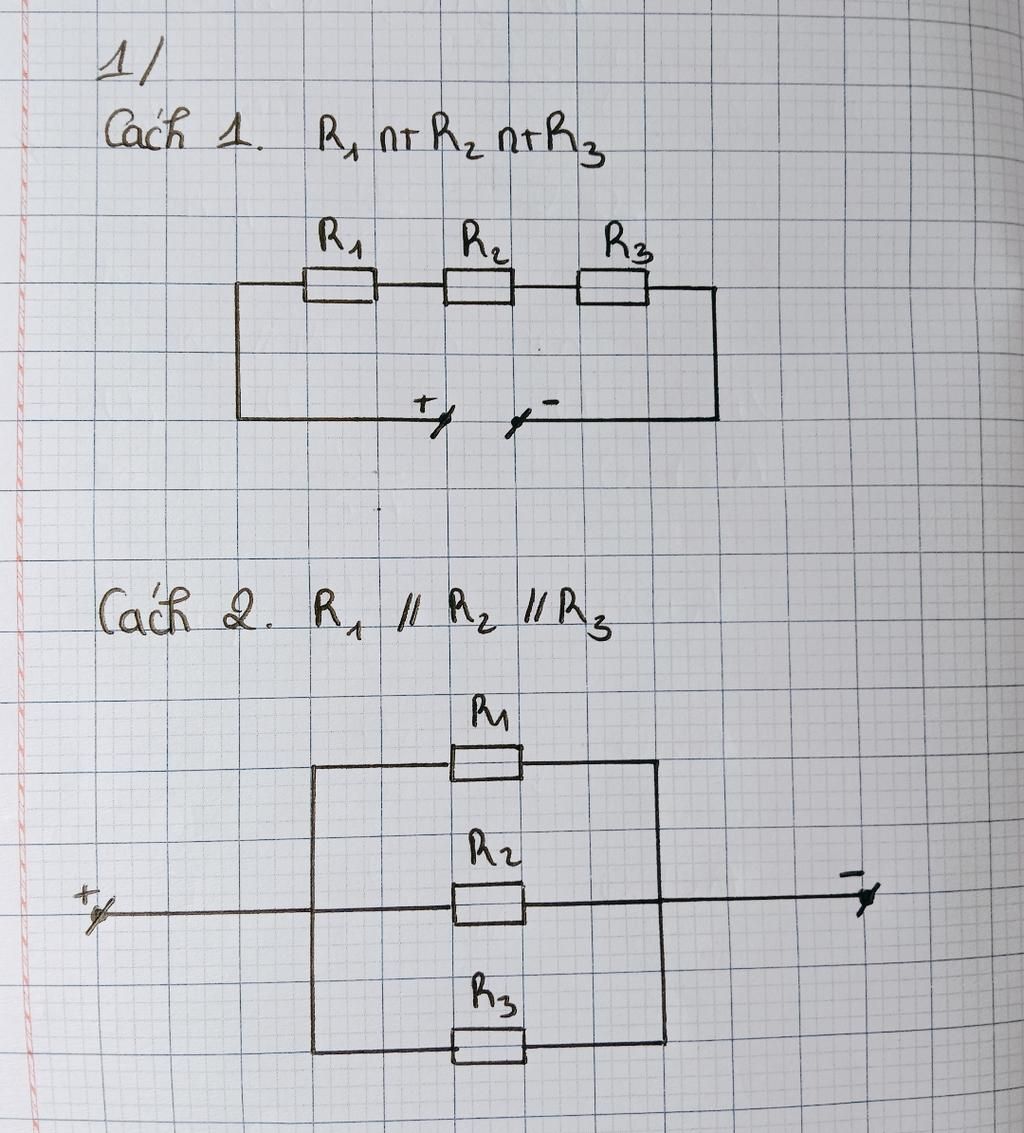 1/
Cách 1. R₁ nt R₂ nt R₃
R₁ R₂ R₃
+ -
Cách 2. R₁ // R₂ // R₃
R₁
R₂
+ -
R₃